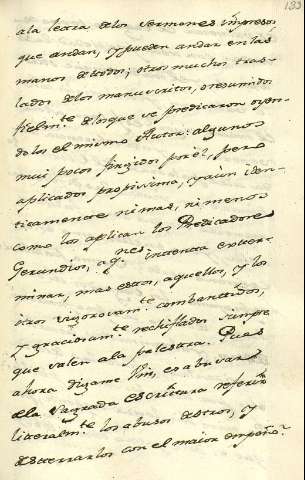 183
a la letra de los sermones impresos
que andan, y pueden andar en las
manos de todos; otros muchos tras-
lados de los manuscritos, o resumidos
fielm.te de los que se predicaron oyen-
dolos el mismo Autor: algunos
mui pocos fingidos por el, pero
aplicados propissima, y aun iden-
ticamente ni mas, ni menos
como los aplican los Predicadores
Gerundios, a q.nes intenta exter-
minar, mas estos, aquellos, y los
otros vigorosam.te combattidos,
y graciosam.te rechiflados siempre
que salen a la palestra. Pues
ahora digame Vm, es abusar
de la Sagrada escritura referir
litteralm.te los abusos de otros, y
desterrarlos con el maior empeño?